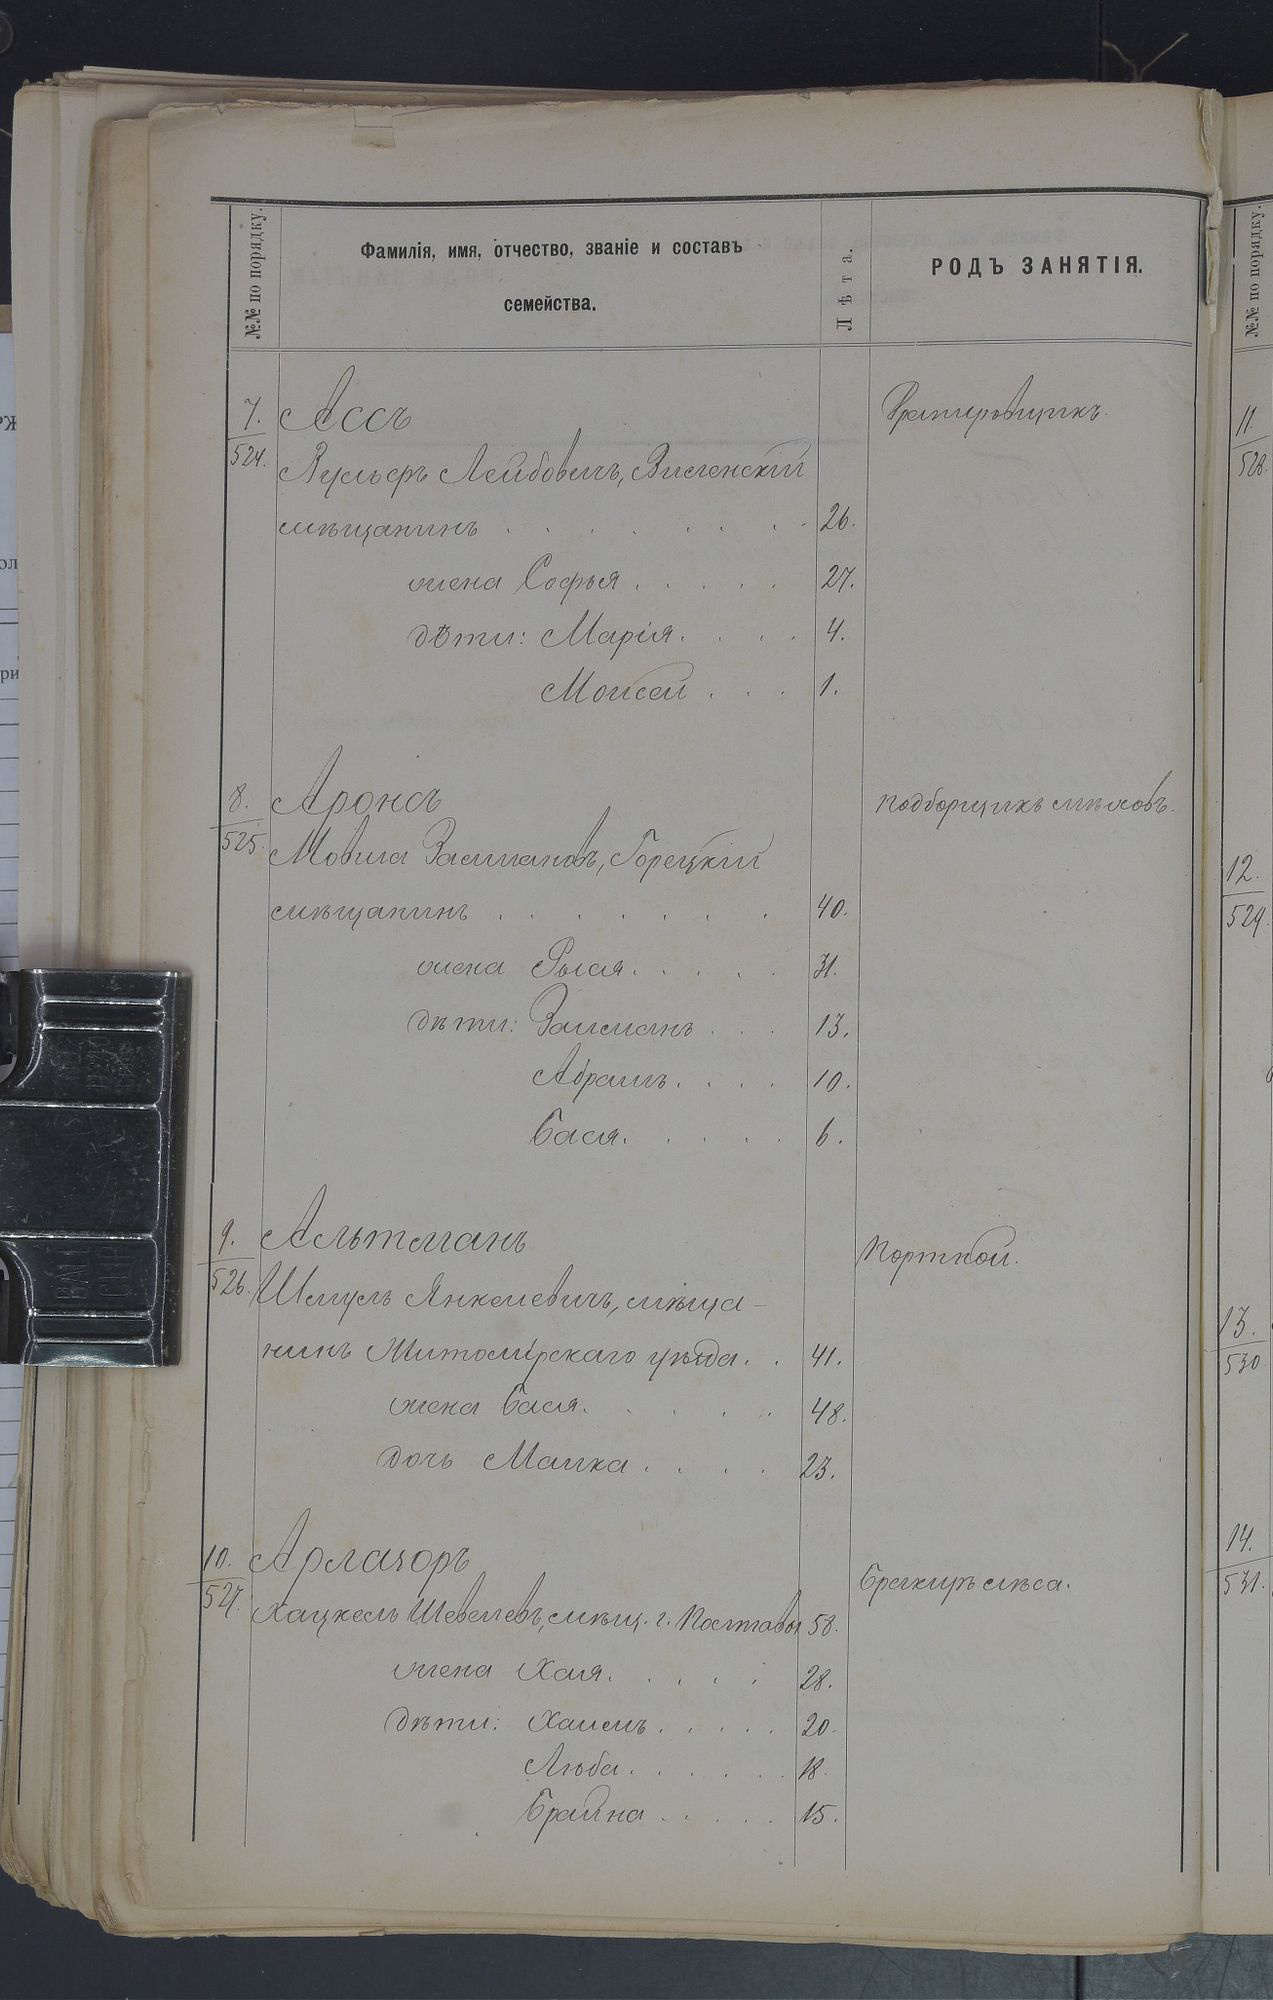 №№ по порядку.
Фамилія, имя, отчество, званіе и составъ
семейства.
Лѣта.
РОДЪ ЗАНЯТІЯ.
7. Ассъ
524. Вульфъ Лейбовичъ, Виленскій
мѣщанинъ . . . . . . . 26.
жена Софья . . . . . 27.
дѣти: Марія . . . . 4.
Моисей . . . 1.
8. Аронсъ Подборщикъ мѣховъ.
525. Мовша Залмановъ, Горецкій
мѣщанинъ . . . . . . . 40.
жена Рыся . . . . . 31.
дѣти: Залманъ . . . 13.
Абрамъ . . . . 10.
Бася . . . . . 6.
9. Альтманъ Портной.
526. Шмуль Янкелевичъ, мѣща-
нинъ Житомірскаго уѣзда . . 41.
жена Бася . . . . . 48.
дочь Малка . . . . 23.
10. Бракиръ мѣса.
527. Хацкель Шевелевъ, мѣщ. г. Полтавы 58.
жена Хая . . . . . 28.
дѣти: Хаимъ . . . . . 20.
Люба . . . . . . 18.
Брайна . . . . . 15.
№№ по порядку.
11.
528.
12.
529.
13.
530
14.
531.